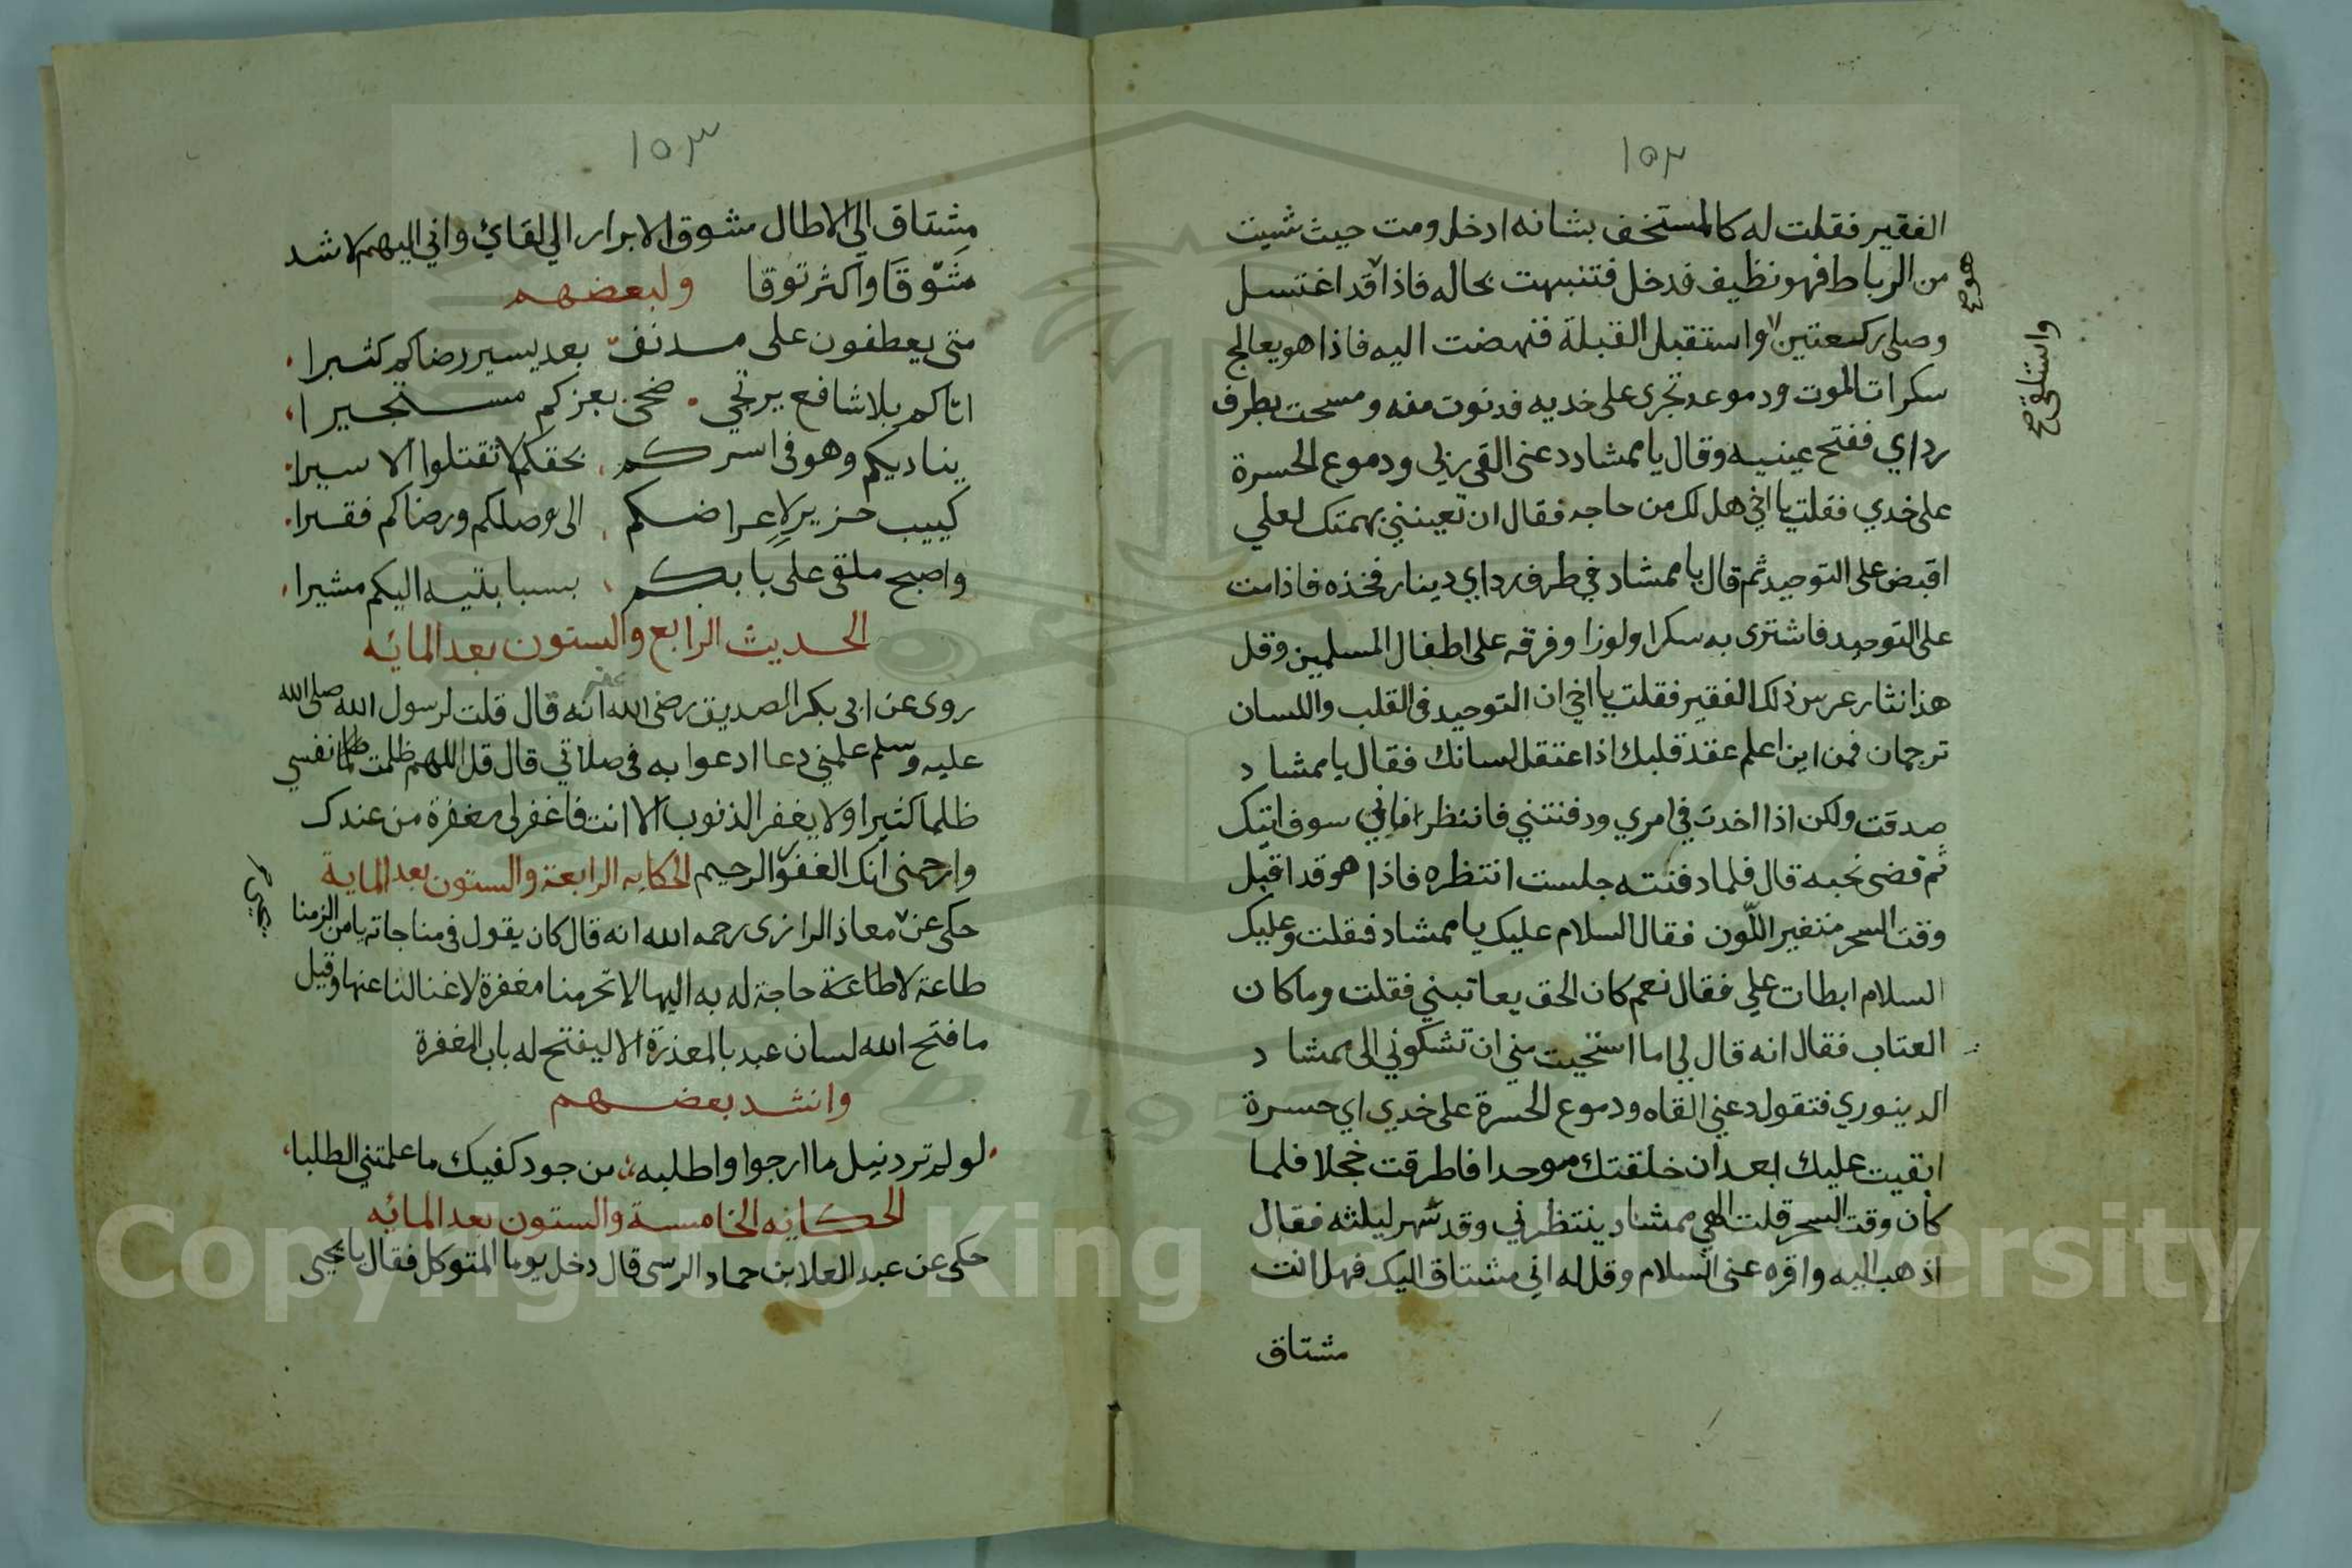 ١٥٢
الفقير فقلت له كالمستخف بشانه ادخل ومت حيث شيت
من الرباط فهو نظيف فدخل فتنبهت بحاله فاذا قد اغتسل
هو صح
وصلى ركعتين واستقبل القبلة فنهضت اليه فاذا هو يعالج
واستلقى صح
سكرات الموت ودموعه تجرى على خديه فدنوت منه ومسحت بطرف
رداي ففتح عينيه وقال يا ممشاد دعنى القى ربى ودموع الحسرة
على خدي فقلت يا اخي هل لك من حاجه فقال ان تعينني بهمتك لعلي
اقبض على التوحيد ثم قال يا ممشاد في طرف رداي دينار فخذه فاذا مت
على التوحيد فاشترى به سكرا ولوزا وفرقه على اطفال المسلمين وقل
هذا نثار عرس ذلك الفقير فقلت يا اخي ان التوحيد في القلب واللسان
ترجمان فمن اين اعلم عقد قلبك اذا عتقل لسانك فقال يا ممشاد
صدقت ولكن اذا اخدت في امري ودفنتني فانتظر فاني سوف اتيك
ثم قضى نحبه قال فلما دفنته جلست انتظره فاذا هو قد اقبل
وقت السحر متغير اللون فقال السلام عليك يا ممشاد فقلت وعليك
السلام ابطات علي فقال نعم كان الحق يعاتبني فقلت وما كان
العتاب فقال انه قال لي اما استحيت مني ان تشكوني الى ممشاد
الدينوري فتقول دعني القاه ودموع الحسرة على خدي اي حسرة
ابقيت عليك بعد ان خلقتك موحدا فاطرقت خجلا فلما
كان وقت السحر قلت الهي ممشاد ينتظرني وقد سهر ليلته فقال
اذهب اليه واقره عنى السلام وقل له اني مشتاق اليك فهل انت
مشتاق
١٥٣
مشتاق الي الاطال مشوق الابرار الي لقائ واني اليهم لاشد
مشوقا واكثر توقا ولبعضهم
متى يعطفون على مدنف بعد يسير رضاكم كثيرا
اتاكم بلا شافع يرتجي ضحى بعزكم مستجيرا
يناديكم وهو في اسركم بحقكم لا تقتلوا الاسيرا
كييب حزير لاعراضكم الى وصلكم ورضاكم فقيرا
واصبح ملقى على بابكم بسبابتيه اليكم مشيرا
الحديث الرابع والستون بعد المائه
روى عن ابى بكر الصديق رضى الله عنه انه قال قلت لرسول الله صلى الله
عليه وسلم علمني دعا ادعوا به فى صلاتي قال قل اللهم ظلمت نفسي
ظلما كثيرا ولا يغفر الذنوب الا انت فاغفر لى مغفرة من عندك
وارحمنى انك الغفور الرحيم الحكايه الرابعة والستون بعد الماية
حكى عن معاذ الرازى رحمه الله انه قال كان يقول فى مناجاته يا من الزمنا
يحيى
طاعة لا طاعة حاجة له به اليها لا تحرمنا مغفرة لا غنا لنا عنها وقيل
ما فتح الله لسان عبد بالمعذرة الا ليفتح له باب المغفرة
وانشد بعضهم
لو لم ترد نيل ما ارجوا واطلبه من جود كفيك ما علمتني الطلبا
الحكايه الخامسة والستون بعد المائه
حكى عن عبد العلا بن حماد الرسى قال دخل يوما المتوكل فقال يا يحيى
Copyright © King Saud University